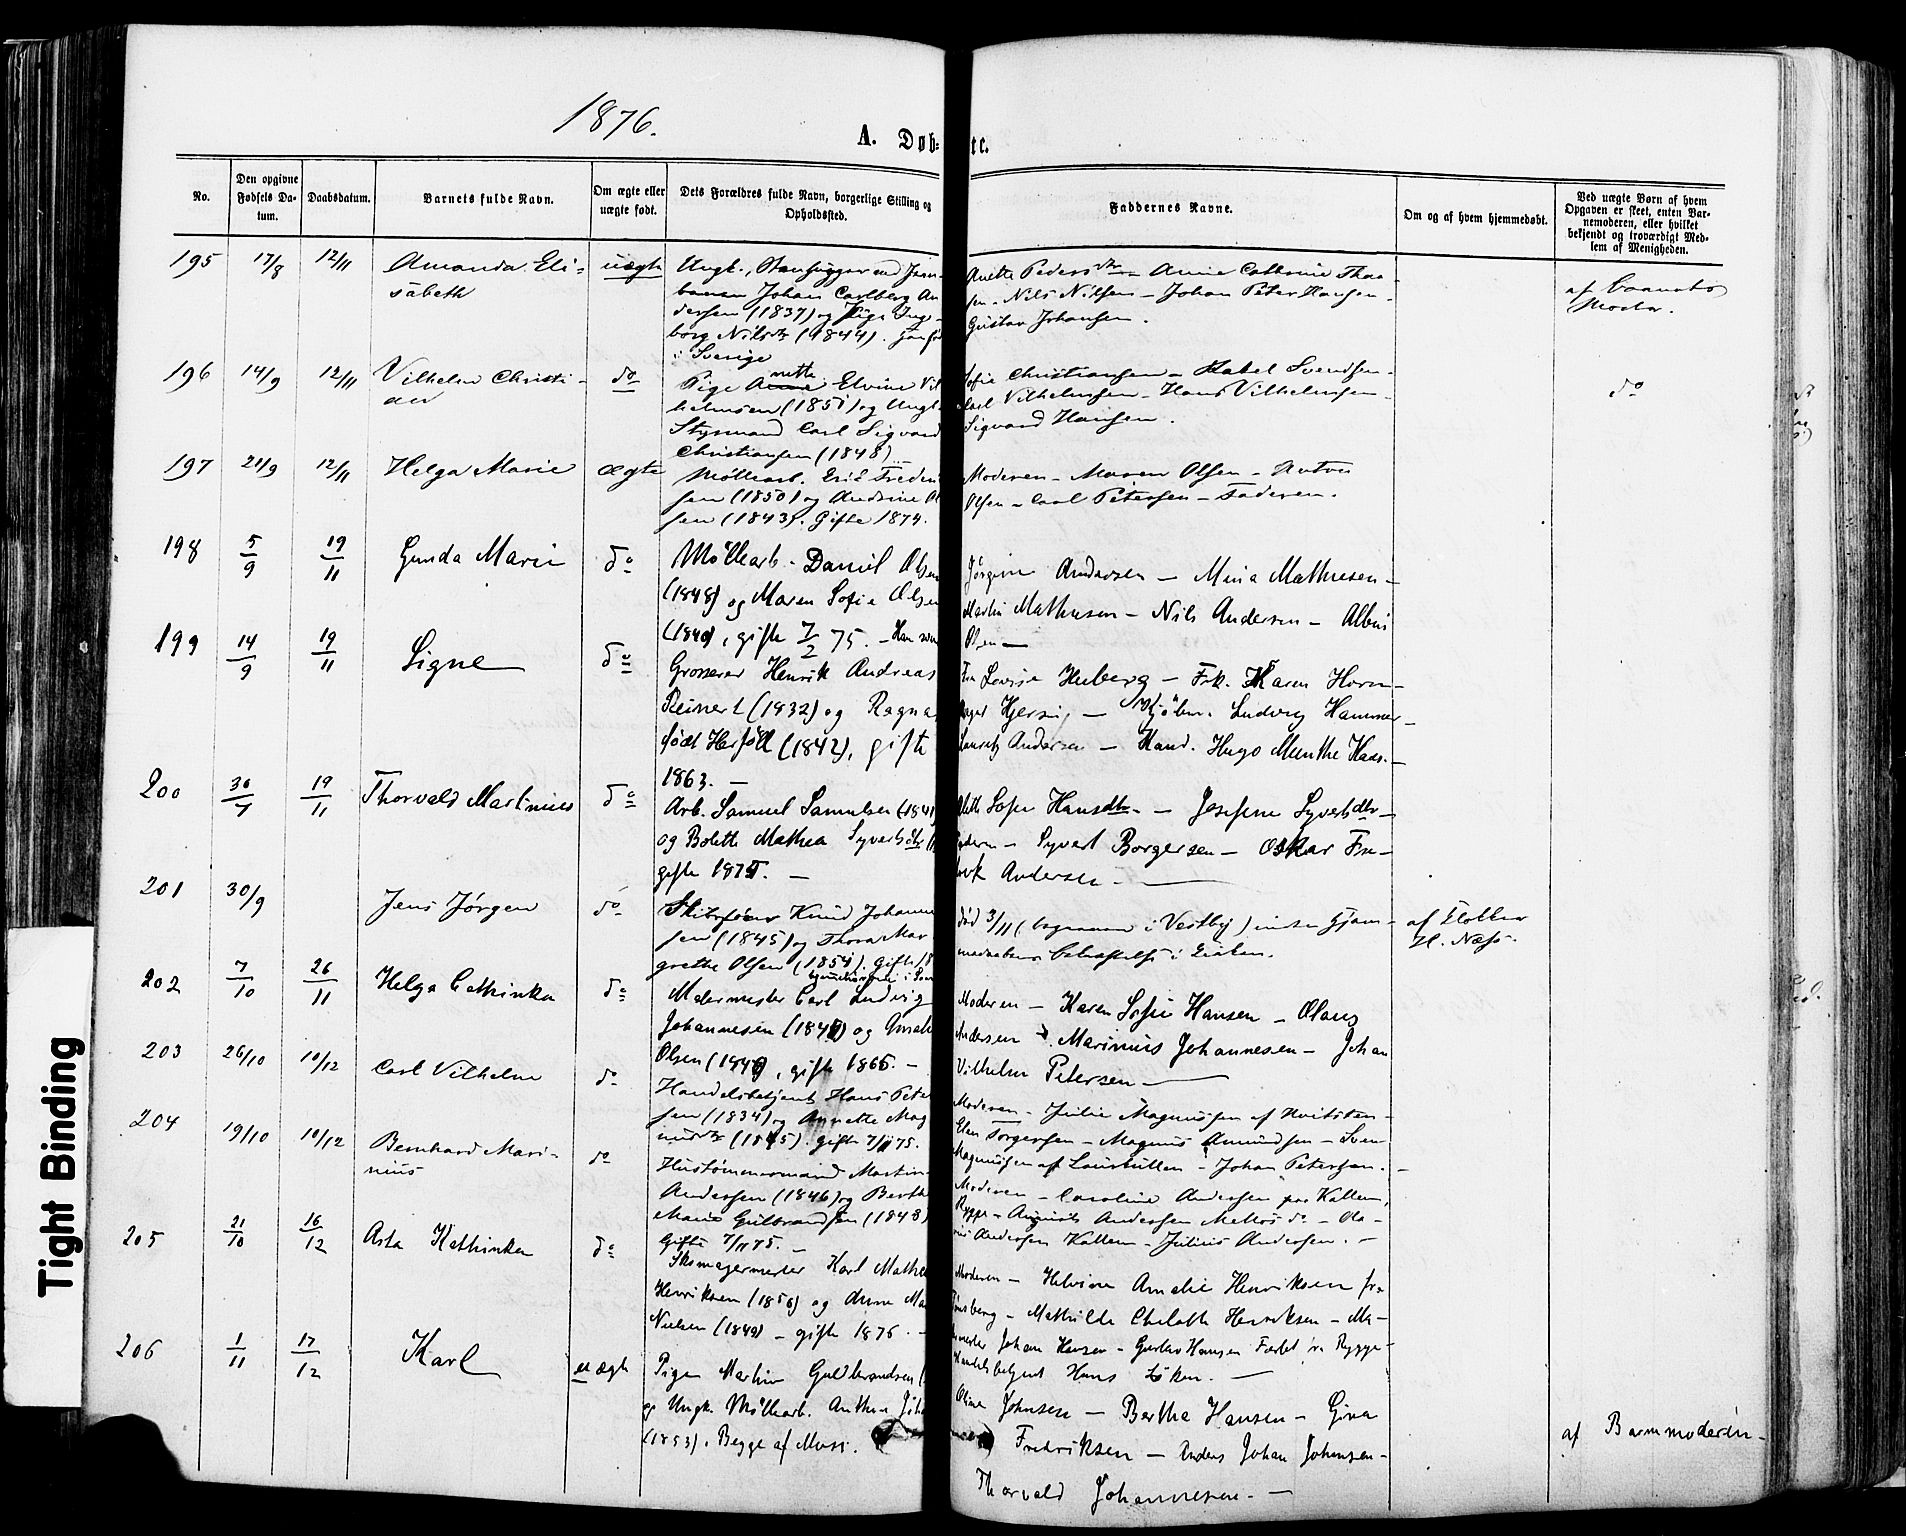 1876.
A. Døb- te.
No.
Den opgivne Fødsels Da-tum.
Daabsdatum.
Barnets fulde Navn.
Om ægte eller uægte født.
Dets Forældres fulde Navn, borgerlige Stilling og Opholdssted.
Faddernes Navne.
Om og af hvem hjemmedøbt.
Ved uægte Børn af hvem Opgaven er skeet, enten Bar-nemoderen, eller hvilket bekjendt og troværdigt Med-lem af Menigheden.
195 17/8 12/11 Amanda Eli-
sabeth
uægte
Ungk., Stenhugger ved Jern-
banen Johan Carlberg An
dersen (1837) og Pige Inge-
borg Nilsdtr (1844).
i Sverige
Anette Pedersdtr — Anne Cathrine Thor
sen — Nils Nilsen — Johan Peter Hansen —
Gustav Johansen.
af Barnets
Moder.
196 14/9 12/11 Vilhelm Christi-
an
do
Pige Anette Elvine Vil
helmsen (1851) og Ungk.
Styrmand Carl Sigvard
Christiansen (1848)
Sofie Christiansen — Isabel Svendsen —
Carl Vilhelmsen — Hans Vilhelmsen —
Sigvard Hansen.
do
197 21/9 12/11 Helga Marie
ægte
Møllearb. Eric Fredrik
sen (1850) og Andrine Ol
sen (1843). Gifte 1874.
Moderen — Maren Olsen —
Olsen — Carl Petersen — Faderen.
198 5/9 19/11 Gunda Marie
do
Møllearb. Daniel Olsen
(1848) og Maren Sofie Olsen
(1840), gifte 7/2 75. —
Jørgine Andersen — Mina Mathiesen —
Martin Mathiesen — Nils Andersen — Albin
Olsen —
199 14/9 19/11 Signe
do
Grosserer Henrik Andreas
Reinert (1832) og Ragna
født Herføll (1842), gifte
1863. —
Fru Lovise Huberg — Frk. Karen Horn —
Kjøbm. Ludvig Hammer —
Lauritz Andersen — Kand. Hugo Munthe Kaas. —
200 30/7 19/11 Thorvald Martinius
do
Arb. Samuel Samuelsen (1841
og Bolette Mathea Syvertsdtr
gifte 1875. —
Sofie Hansdtr. — Josefine Syvertsdtr —
Faderen — Syvert Borgersen — Oskar Fre-
drik Andersen —
201 30/9 Jens Jørgen
do
Skibsfører Knud Johanne
sen (1845) og Thora Mar
grethe Olsen (1854). Gifte 18
død 3/11 (begraven i Vestby) inden Hjem-
medaabens bekræftelse i Kirken.
af
H. Næss.
202 7/10 26/11 Helga Cathinka
do
Malermester Carl Ludvig
Johannesen (1842) og Amalie
Olsen (1840), gifte 1865. —
Moderen — Karen Sofie Hansen — Olaus
Andersen — Marinius Johannesen — Johan
Vilhelm Petersen —
203 26/10 10/12 Carl Vilhelm
do
Handelsbetjent Hans Peter
sen (1834) og Annette Mag
nusdtr (1845). gifte 7/1 75.
Moderen — Julie Magnussen af Hvitsten —
Torgersen — Magnus Amundsen — Sven
Magnussen af Laurkullen — Johan Petersen. —
204 19/10 10/12 Bernhard Mari-
nius
do
Hustømmermand Martin
Andersen (1846) og Berthe
Marie Gulbrandsen (1848)
Gifte 7/11 75. —
Moderen — Caroline Andersen paa Kallum,
Rygge — August Andersen Melløs do — Ola-
us Andersen Kallum — Julius Andersen. —
205 21/10 16/12 Asta Kathinka
do
Skomagermester Karl Mathi
Henriksen (1850) og Anne Mar
Nielsen (1849) — gifte 1876. —
Moderen — Helvine Amalie Henriksen fra
Tønsberg — Mathilde Charlotte Henriksen — Ma-
lermester Johan Hansen — Gustav Hansen fra Rygge —
Handelsbetjent Hans Løken. —
206 1/11 17/12 Karl
uægte
Pige Martine Guldbrandsen (
og Ungk. Møllearb. Anthon Joha
(1853). Begge af Moss.
Oline Johnsen — Bertha Hansen — Gina
Fredriksen — Anders Johan Johansen —
Thorvald Johannesen. —
af Barnemoderen —
Tight Binding